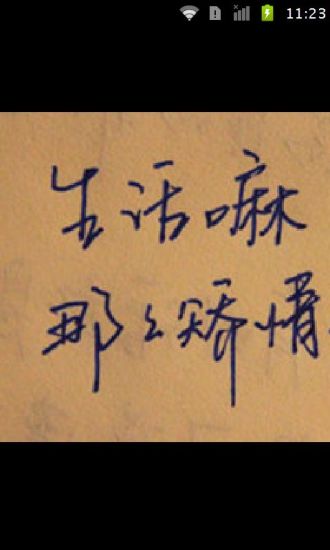 11:23
生活嘛
那么矫情